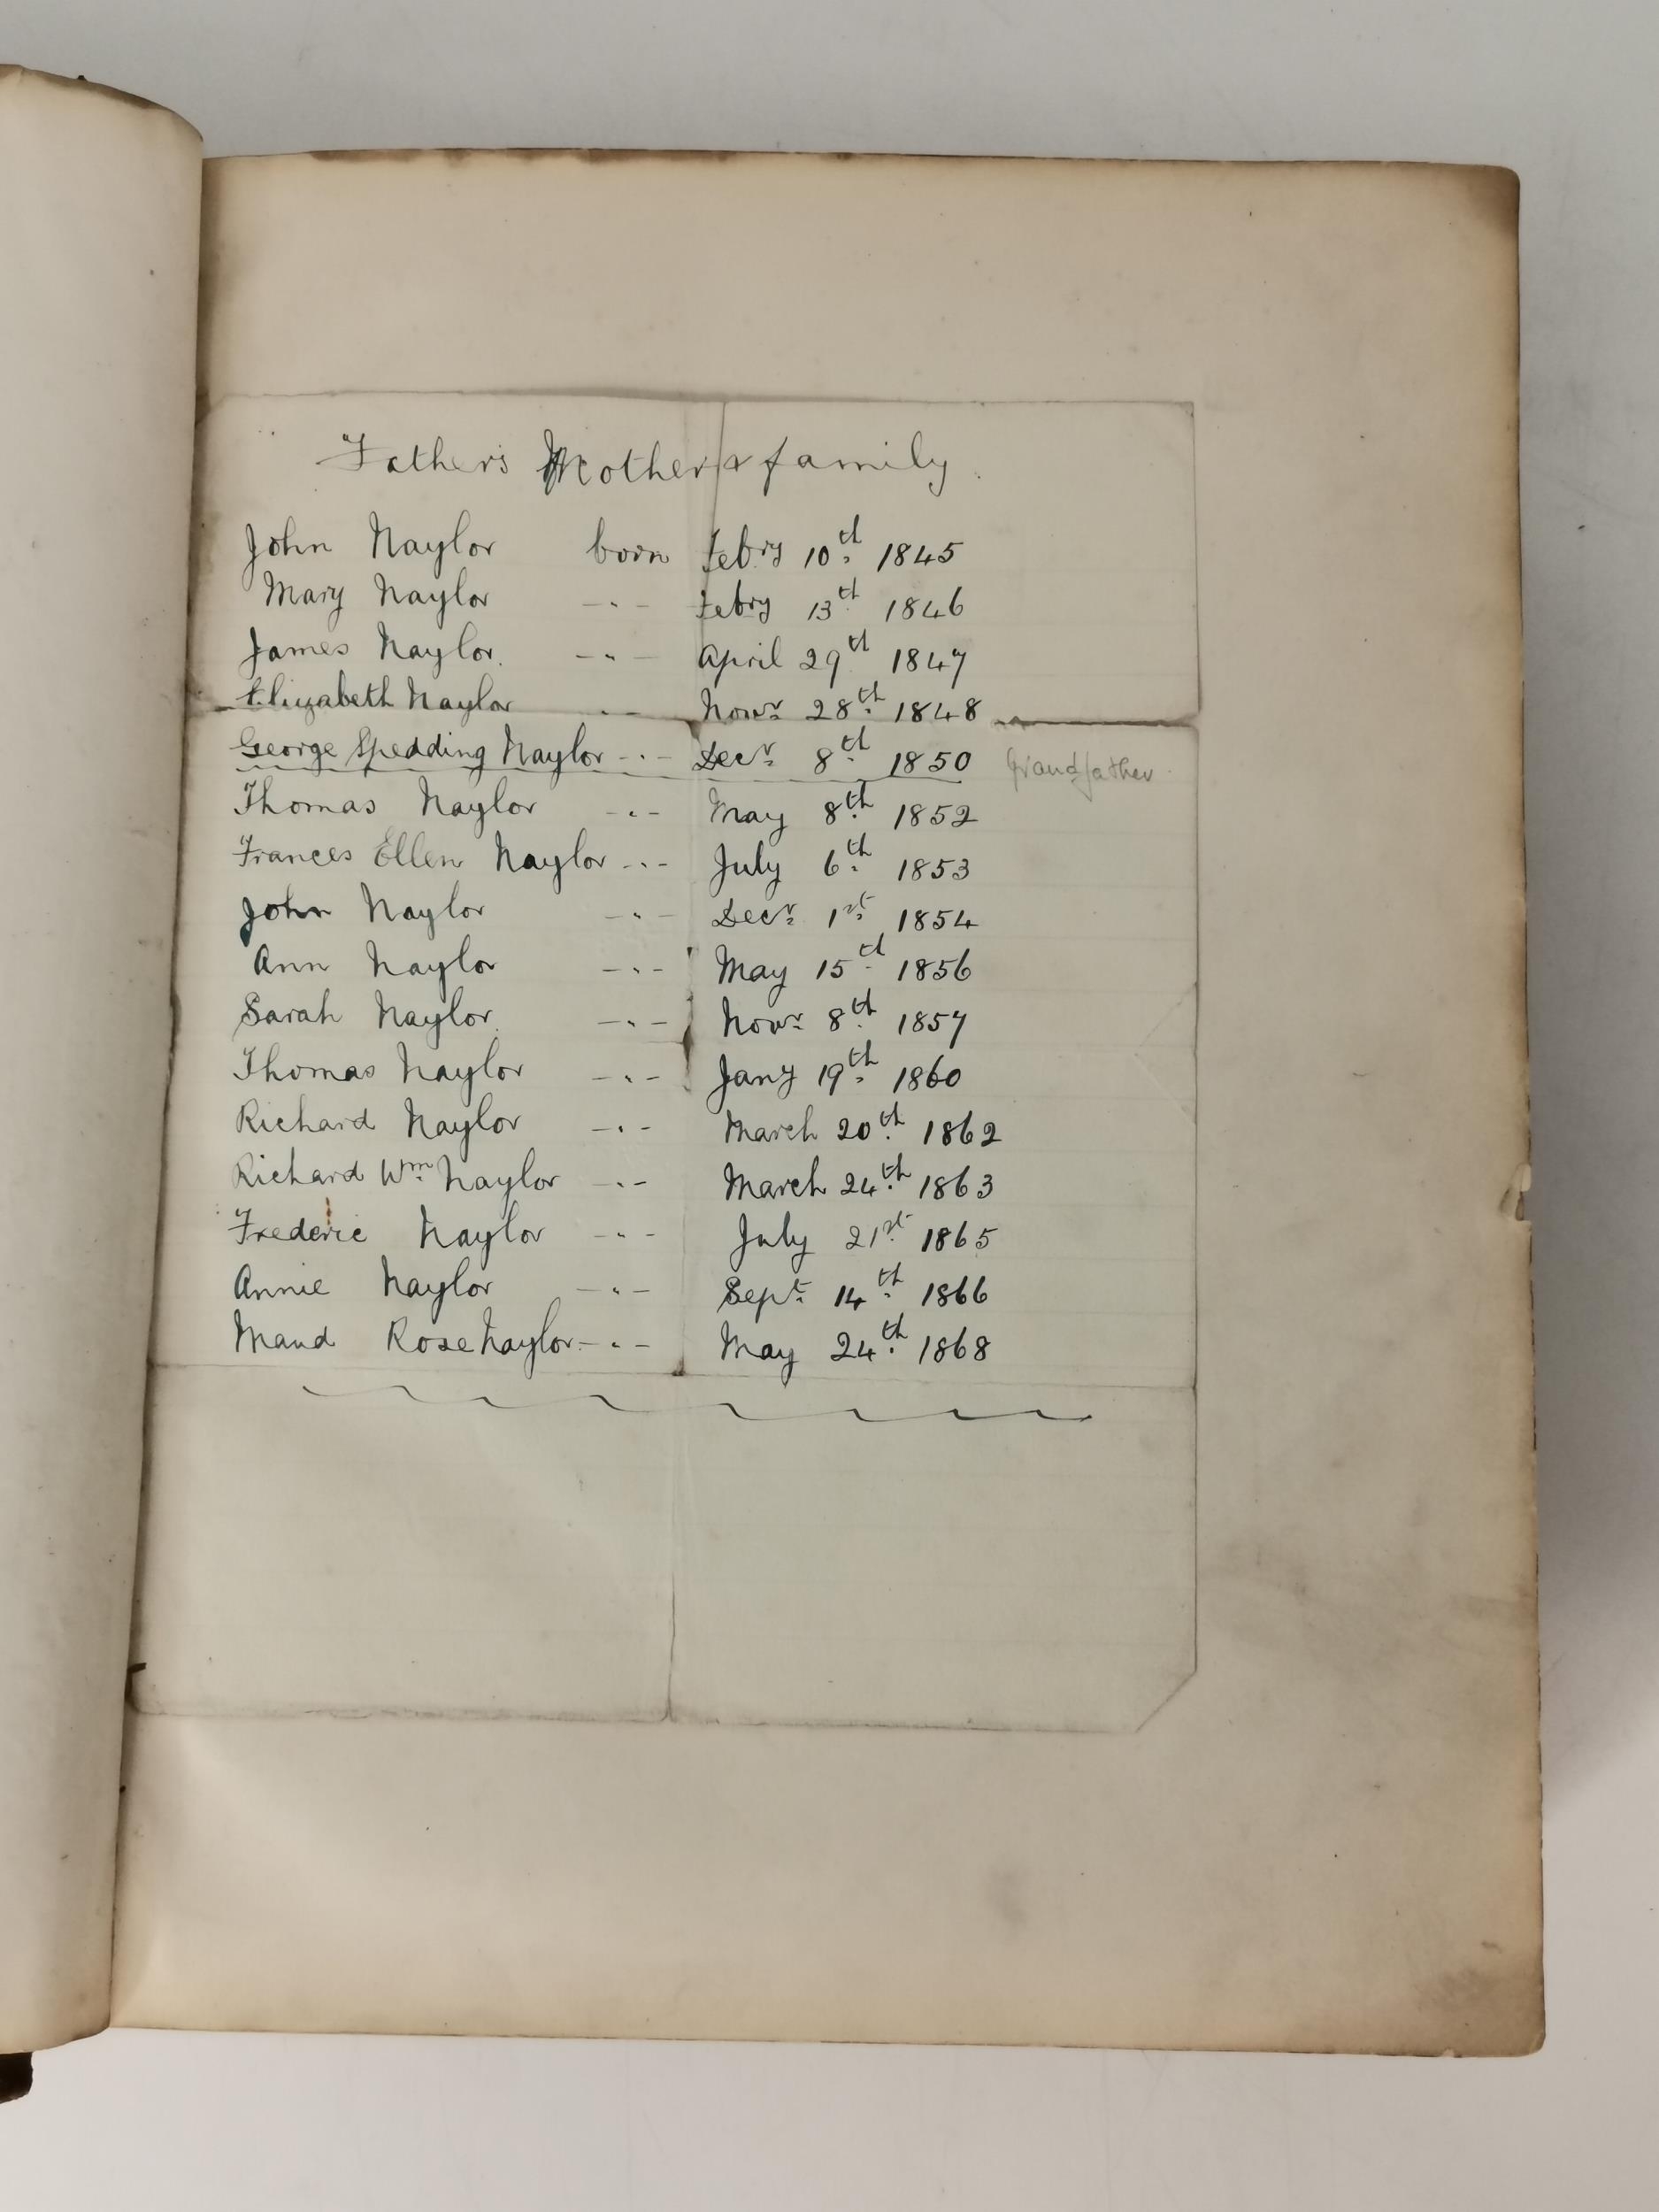 Father's Mothers family
John Naylor born Febry 10th 1845
Mary Naylor -"- Febry 13th 1846
James Naylor. -"- April 29th 1847
Elizabeth Naylor "- Novr 28th 1848
George Spedding Naylor -"- Decr 8th 1850 Grandfather
Thomas Naylor -"- May 8th 1852
Frances Ellen Naylor -"- July 6th 1853
John Naylor -"- Decr 1st 1854
Ann Naylor -"- May 15th 1856
Sarah Naylor. -"- Novr 8th 1857
Thomas Naylor -"- Jany 19th 1860
Richard Naylor -"- March 20th 1862
Richard Wm Naylor -"- March 24th 1863
Frederic Naylor -"- July 21st 1865
Annie Naylor -"- Sept 14th 1866
Maud Rose Naylor -"- May 24th 1868